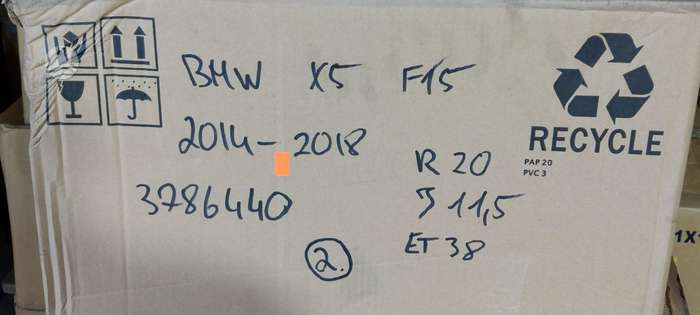 BMW X5 F15
2014-2018
3786440
R 20
J 11,5
ET 38
2.
RECYCLE
PAP 20
PVC 3
1X1